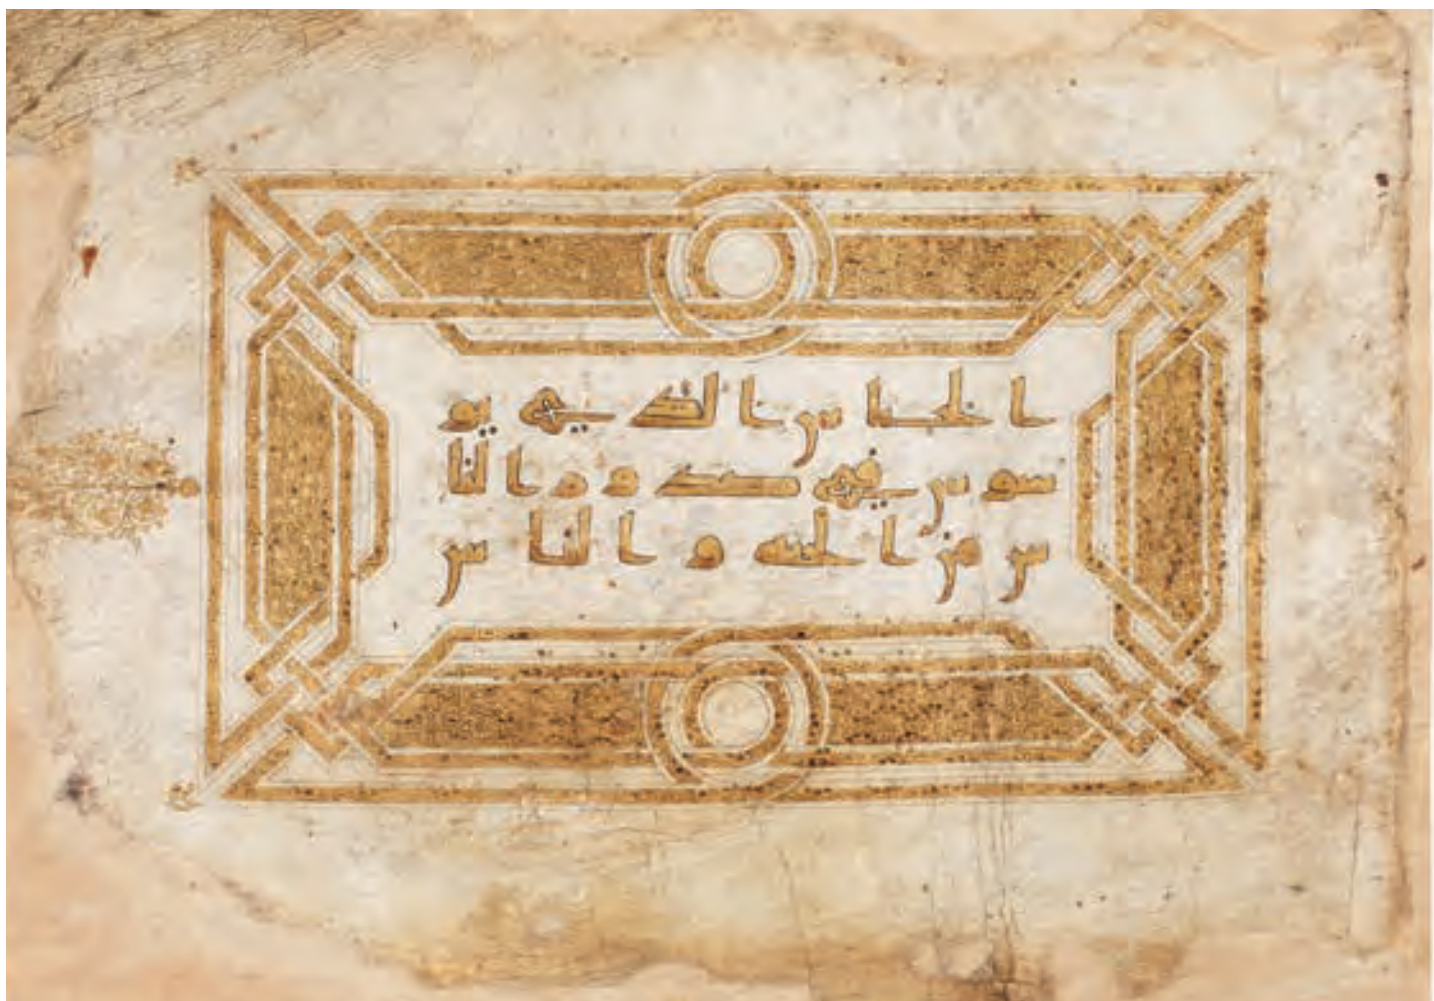 الخناس الذي يو
سوس في صدور النا
س من الجنة والناس